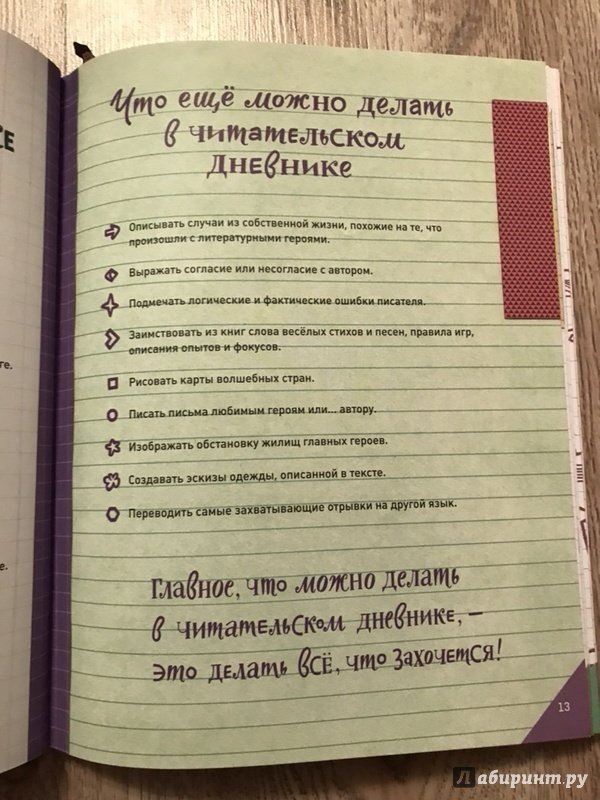 Что ещё можно делать
в читательском
дневнике
Описывать случаи из собственной жизни, похожие на те, что
произошли с литературными героями.
Выражать согласие или несогласие с автором.
Подмечать логические и фактические ошибки писателя.
Заимствовать из книг слова весёлых стихов и песен, правила игр,
описания опытов и фокусов.
Рисовать карты волшебных стран.
Писать письма любимым героям или... автору.
Изображать обстановку жилищ главных героев.
Создавать эскизы одежды, описанной в тексте.
Переводить самые захватывающие отрывки на другой язык.
Главное, что можно делать
в читательском дневнике, –
это делать всё, что захочется!
13
Лабиринт.ру